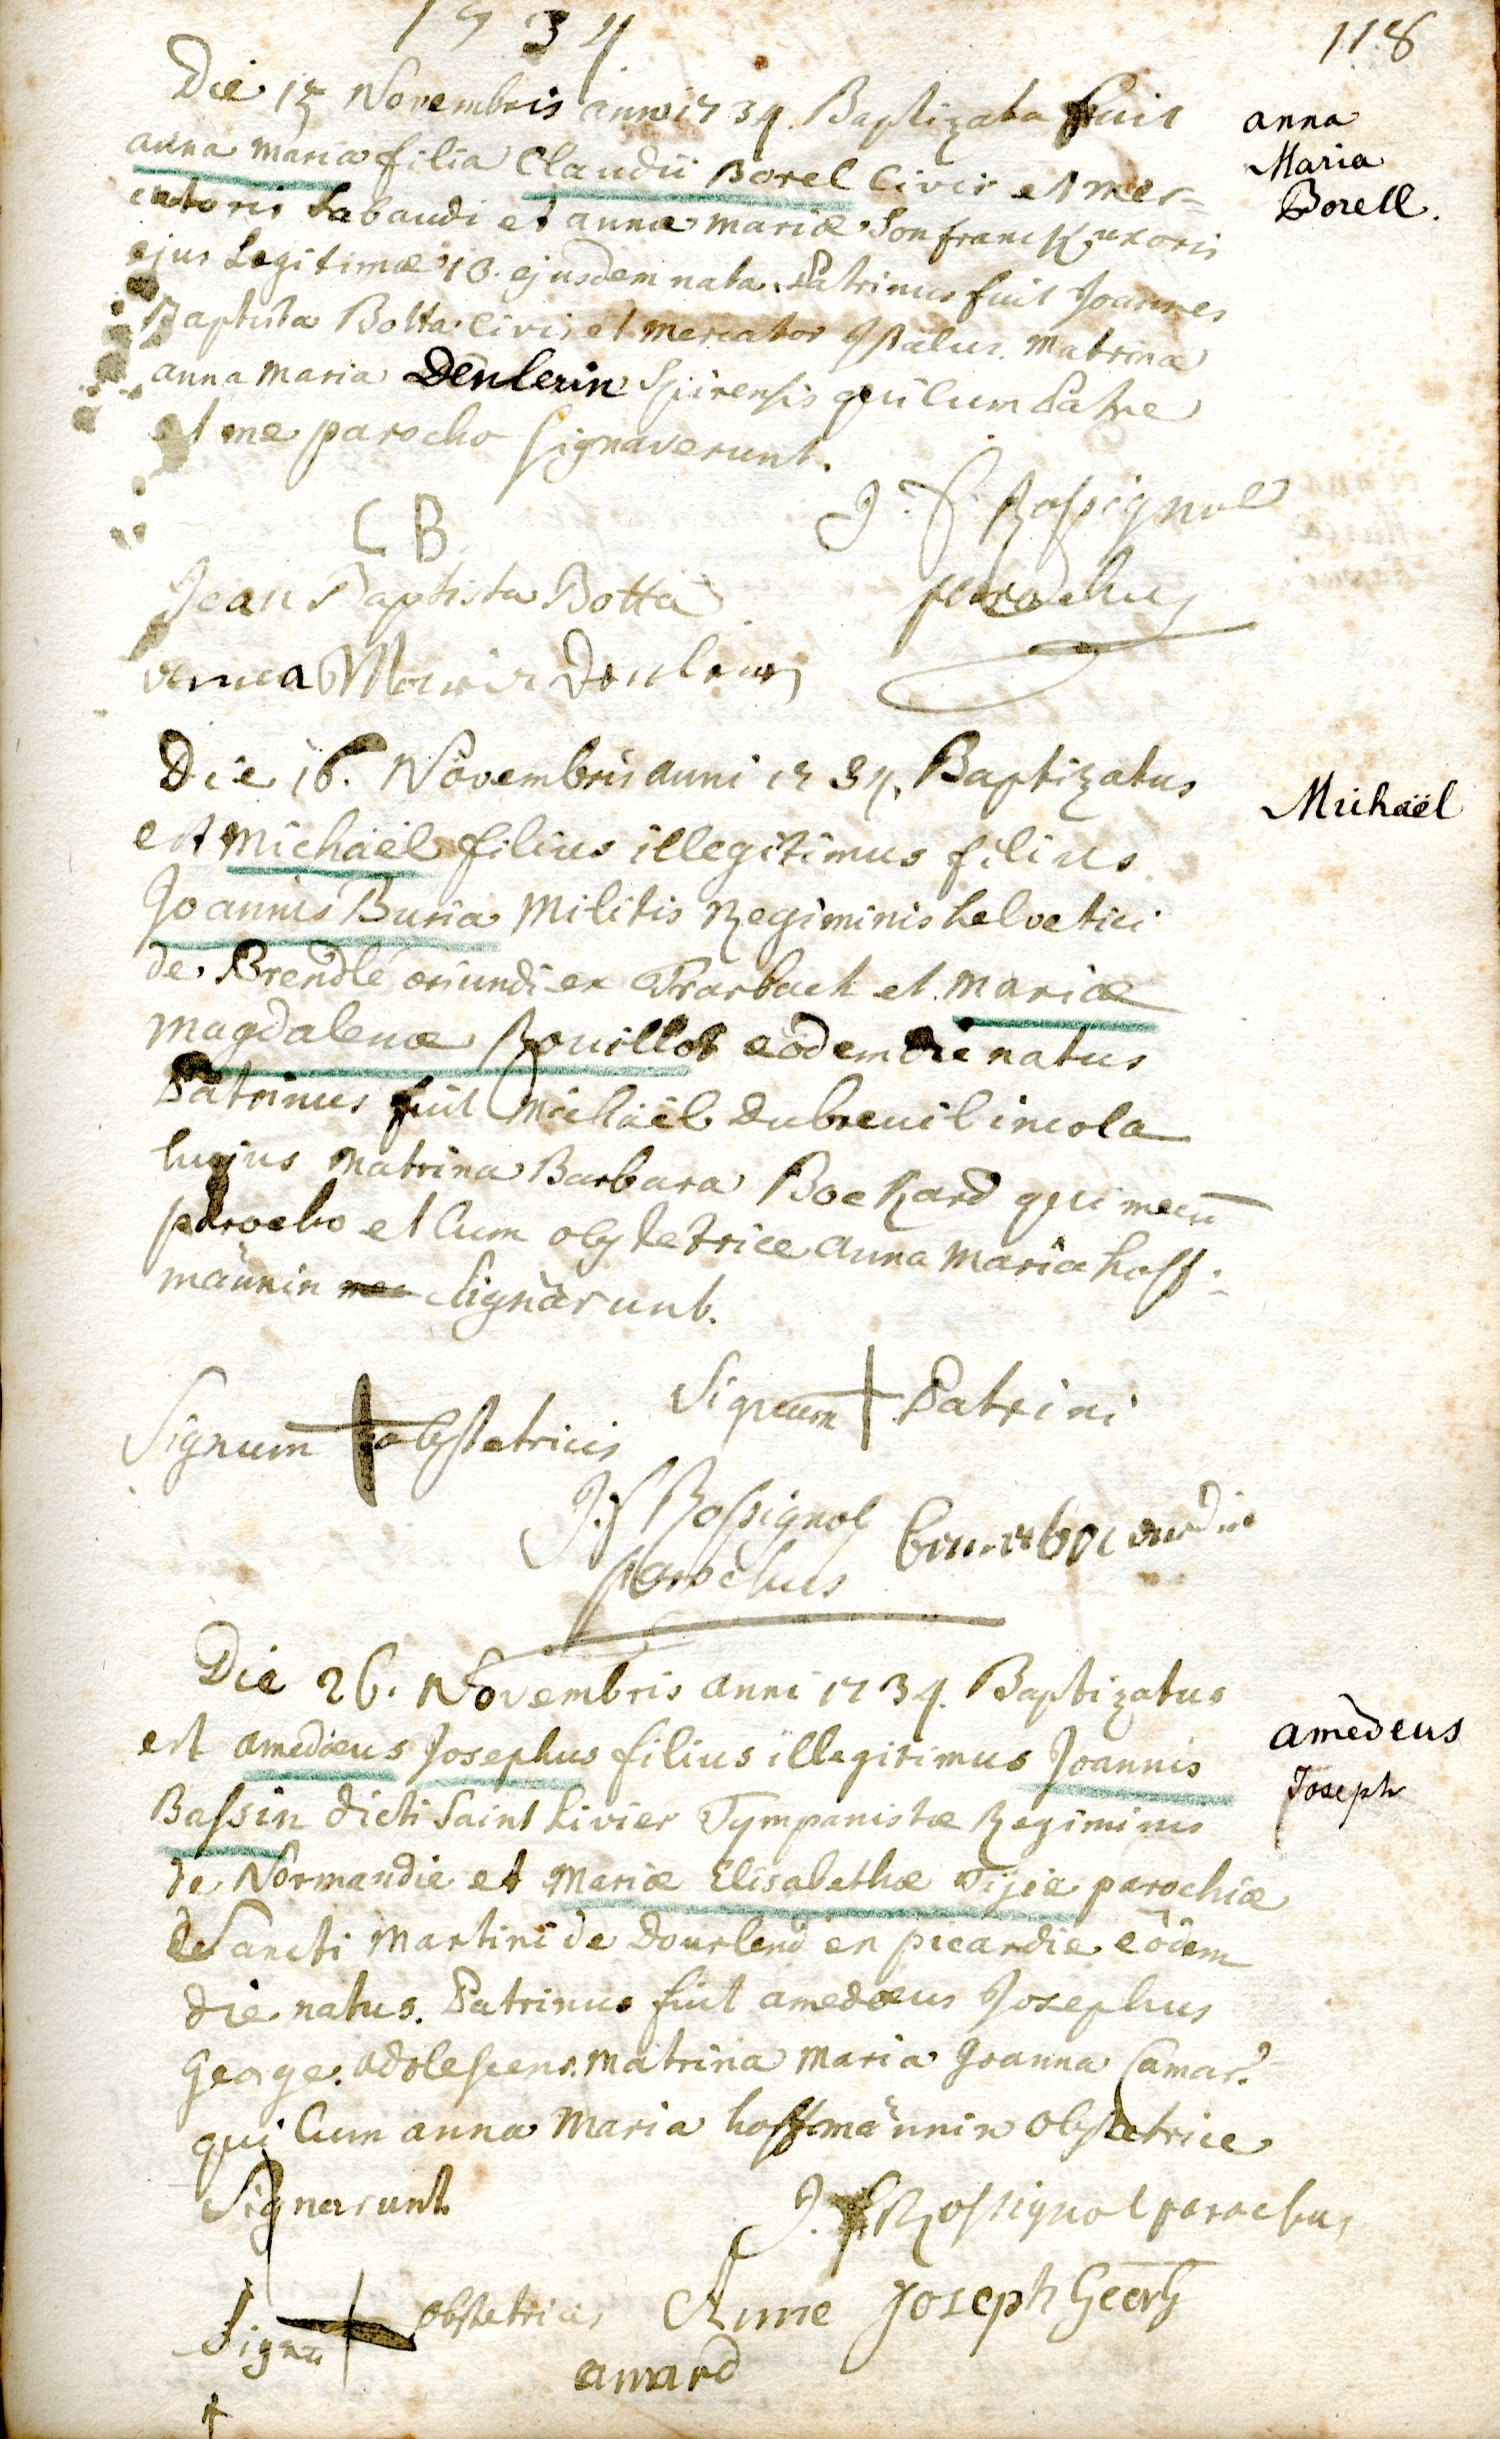 1734
118
Die 15 Novembris anno 1734. Baptizata fuit
anna maria filia Claudii Borel Civis et mer=
catoris Sabaudi et annæ mariæ uxoris
ejus Legitimæ 10. ejusdem nata. Patrinus fuit Joannes
Baptista Botta civis et mercator Italus. matrina
anna maria Denlerin Spirensis qui cum Patre
et me parocho signaverunt.
anna
Maria
Borell.
C B
J. F. Rossignol
parochus
Jean Baptista Botta
anna Maria Denlerin
Die 16. Novembris anni 1734. Baptizatus
est Michaël filius illegitimus filius
Joannis Buria Militis Regiminis helvetici
de Brendlé oriundi ex Trarbach et mariæ
magdalenæ Rouillot eodem die natus
Patrinus fuit Michaël dubreuil incola
hujus matrina Barbara Bockard qui mecū
parocho et cum obstetrice anna maria hoff=
männin signarunt.
Michaël
Signum + obstetricis
Signum + Patrini
J. F Rossignol
parochus
Die 26. Novembris anni 1734. Baptizatus
est amedæus Josephus filius illegitimus Joannis
Bassin dicti Saint Livier Tympanistæ Regiminis
de Normandie et Mariæ Elisabethæ parochiæ
Sancti Martini de Dourlend en picardie eodem
die natus. Patrinus fuit amedæus Josephus
George. adolescens. matrina maria Joanna Camar.
qui cum anna Maria hoffmännin obstetrice
Signarunt
amèdeus
Joseph
J. F Rossignol parochus
Signū + obstetricis
Ame Joseph Georg
amard
+